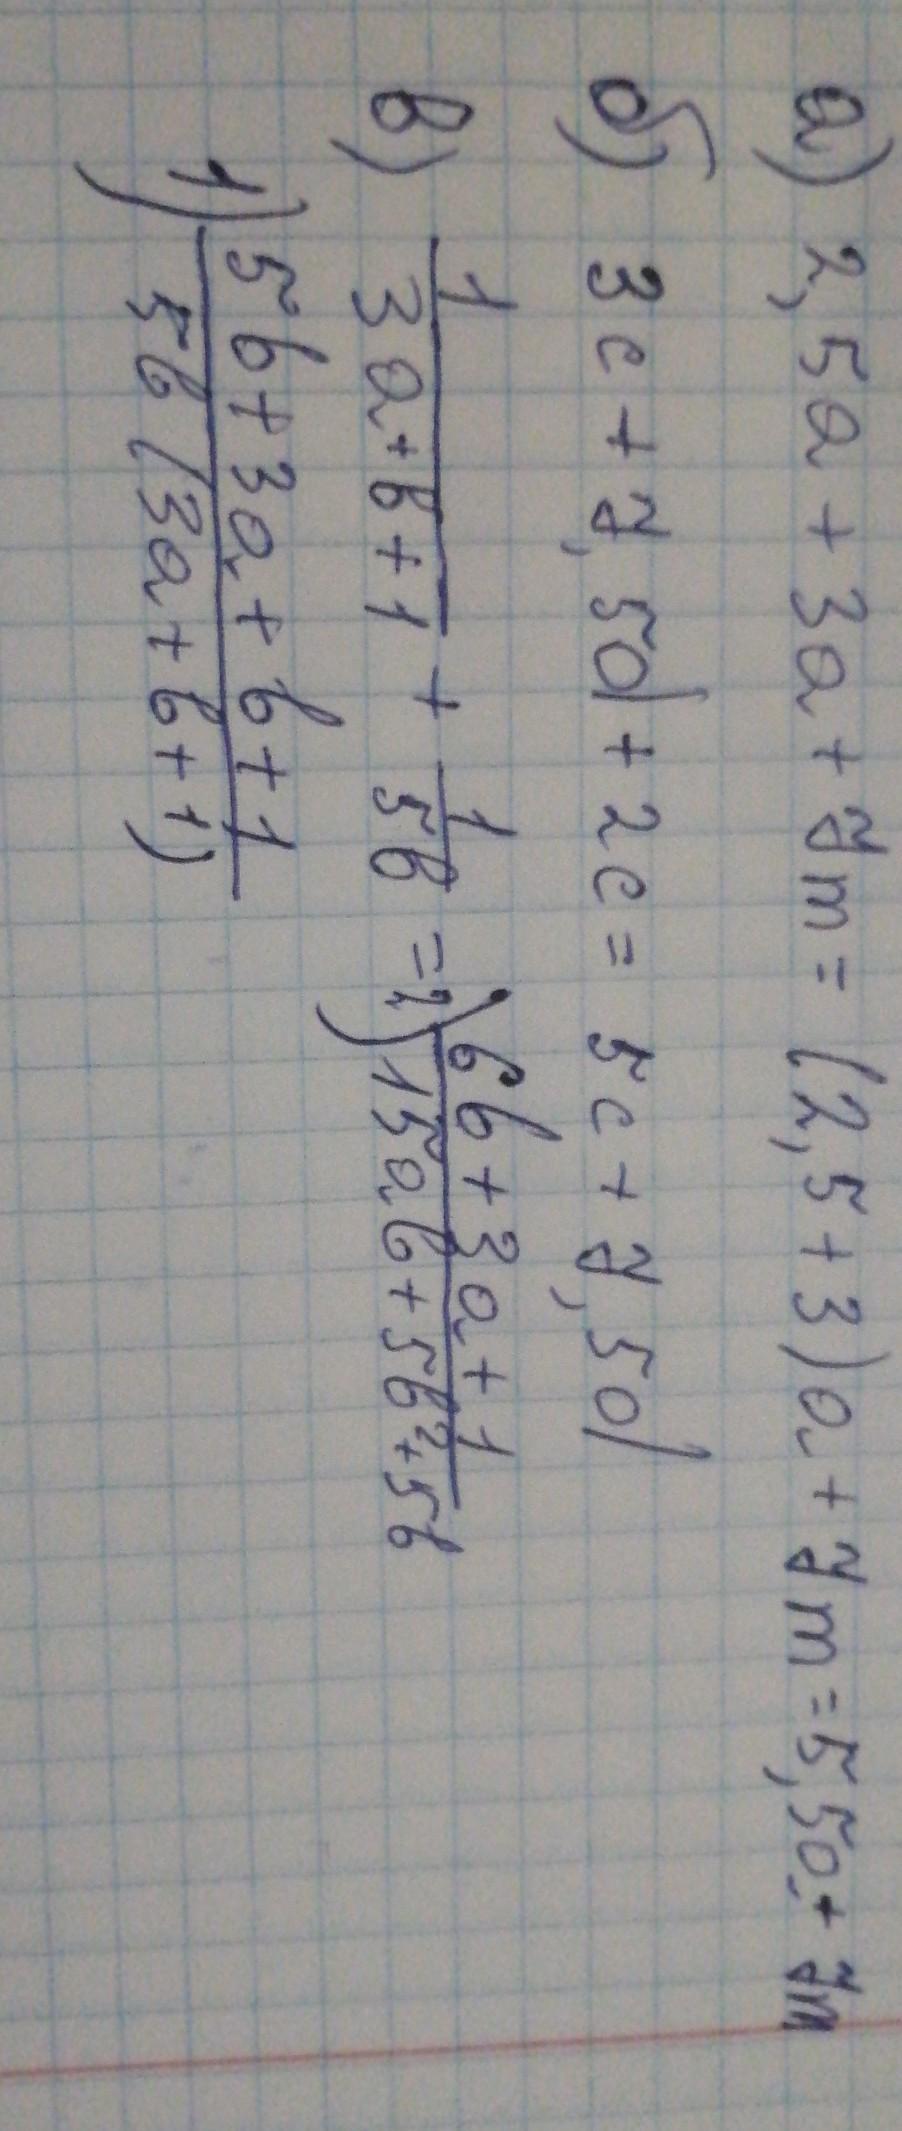 а) 2,5a + 3a + 7m = (2,5 + 3)a + 7m = 5,5a + 7m
б) 3c + 7,5d + 2c = 5c + 7,5d
в) 1/(3a + b + 1) + 1/(5b) = 2) (6b + 3a + 1)/(15ab + 5b² + 5b)
1) (5b + 3a + b + 1)/(5b(3a + b + 1))